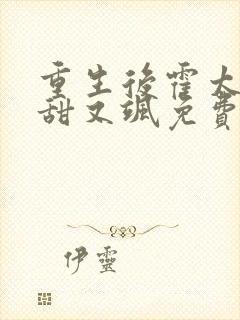 重生後霍太
甜又颯免費
伊靈